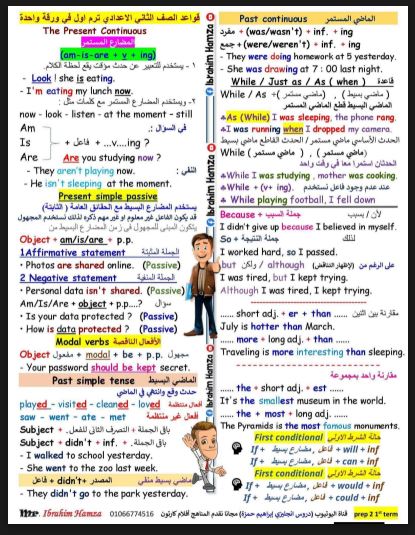 قواعد الصف الثاني الاعدادي ترم اول في ورقة واحدة
The Present Continuous
المضارع المستمر
(am-is-are + v + ing)
١ - يستخدم للتعبير عن حدث مؤقت يقع لحظة الكلام.
- Look ! she is eating.
- I'm eating my lunch now.
٢ - ويستخدم المضارع المستمر مع كلمات مثل :
now - look - listen - at the moment - still
Am
في السؤال :
Is + فاعل + ...v....ing ?
Are Are you studying now ?
- They aren't playing now. النفي :
- He isn't sleeping at the moment.
Present simple passive
يستخدم المضارع البسيط مع الحقائق العامة ( الثابتة)
قد يكون الفاعل غير معلوم او غير مهم ذكره لذلك نستخدم المجهول
يتكون المبنى للمجهول في زمن المضارع البسيط من
Object + am/is/are + p.p.
1Affirmative statement الجملة المثبتة
• Photos are shared online. (Passive)
2 Negative statement الجملة المنفية
• Personal data isn't shared. (Passive)
Am/Is/Are + object + p.p....? سؤال
• Is your data protected ? (Passive)
• How is data protected ? (Passive)
Modal verbs الأفعال الناقصة
Object مفعول + modal + be + p.p. مجهول
- Your password should be kept secret.
Past simple tense الماضي البسيط
حدث وقع وانتهي في الماضي
played - visited - cleaned - loved أفعال منتظمة
saw - went - ate - met أفعال غير منتظمة
Subject + باقي الجملة. + التصرف الثاني للفعل
Subject + didn't + inf. + باقي الجملة.
- I walked to school yesterday.
- She went to the zoo last week.
ماضي بسيط منفي فاعل +didn't+ المصدر
- They didn't go to the park yesterday.
Past continuous الماضي المستمر
مفرد + (was/wasn't) + inf. + ing
جمع + (were/weren't) + inf. + ing
- They were doing homework at 5 yesterday.
- She was drawing at 7 : 00 last night.
While / Just as / As ( when ) قاعدة
While / As +( ماضي مستمر ) , ( ماضي بسيط )
الماضي البسيط قطع الماضي المستمر
♣As (While) I was sleeping, the phone rang.
♣I was running when I dropped my camera.
الحدث الأساسي ماضي مستمر / الحدث القاطع ماضي بسيط
While ( ماضي مستمر ) , ( ماضي مستمر )
الحدثان استمرا معا في وقت واحد
♣While I was studying , mother was cooking.
♣While + (v+ ing). عند عدم وجود فاعل نستخدم
♣ While playing football, I fell down
Because + جملة السبب لأن / بسبب
I didn't give up because I believed in myself.
So + جملة النتيجة لذلك
I worked hard, so I passed.
but ولكن / although (لإظهار التناقض) على الرغم من
I was tired, but I kept trying.
Although I was tired, I kept trying.
..... short adj. + er + than ...... مقارنة بين اثنين
July is hotter than March.
..... more + long adj. + than ......
Traveling is more interesting than sleeping.
مقارنة واحد بمجموعة
..... the + short adj. + est ......
It's the smallest museum in the world.
..... the + most + long adj. ......
The Pyramids is the most famous monuments.
First conditional حالة الشرط الاولى
If + مضارع بسيط , فاعل + will + inf
If + مضارع بسيط , فاعل + can + inf
First conditional حالة الشرط الاولى
If + مضارع بسيط , فاعل + would + inf
If + مضارع بسيط , فاعل + could + inf
Ibrahim Hamza
Ibrahim Hamza
Ibrahim Hamza
Ibrahim Hamza
Mr. Ibrahim Hamza 01066774516 قناة اليوتيوب (دروس انجليزي إبراهيم حمزة) مجانا نقدم المناهج أفلام كارتون prep 2 1st term